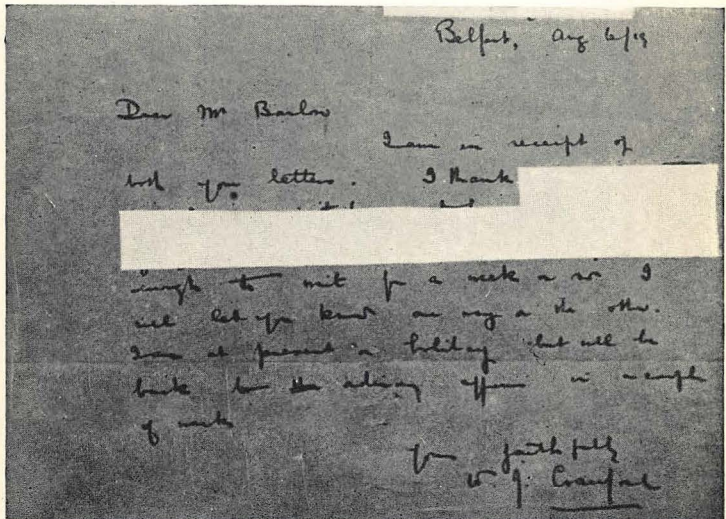 Belfast, Aug 6/19
Dear Mr Barlow
I am in receipt of
both your letters. I thank
enough to wait for a week or so I
will let you know one way or the other.
I am at present on holiday but will be
back to the ordinary affairs in a couple
of weeks
Yours faithfully
W J. Crawford